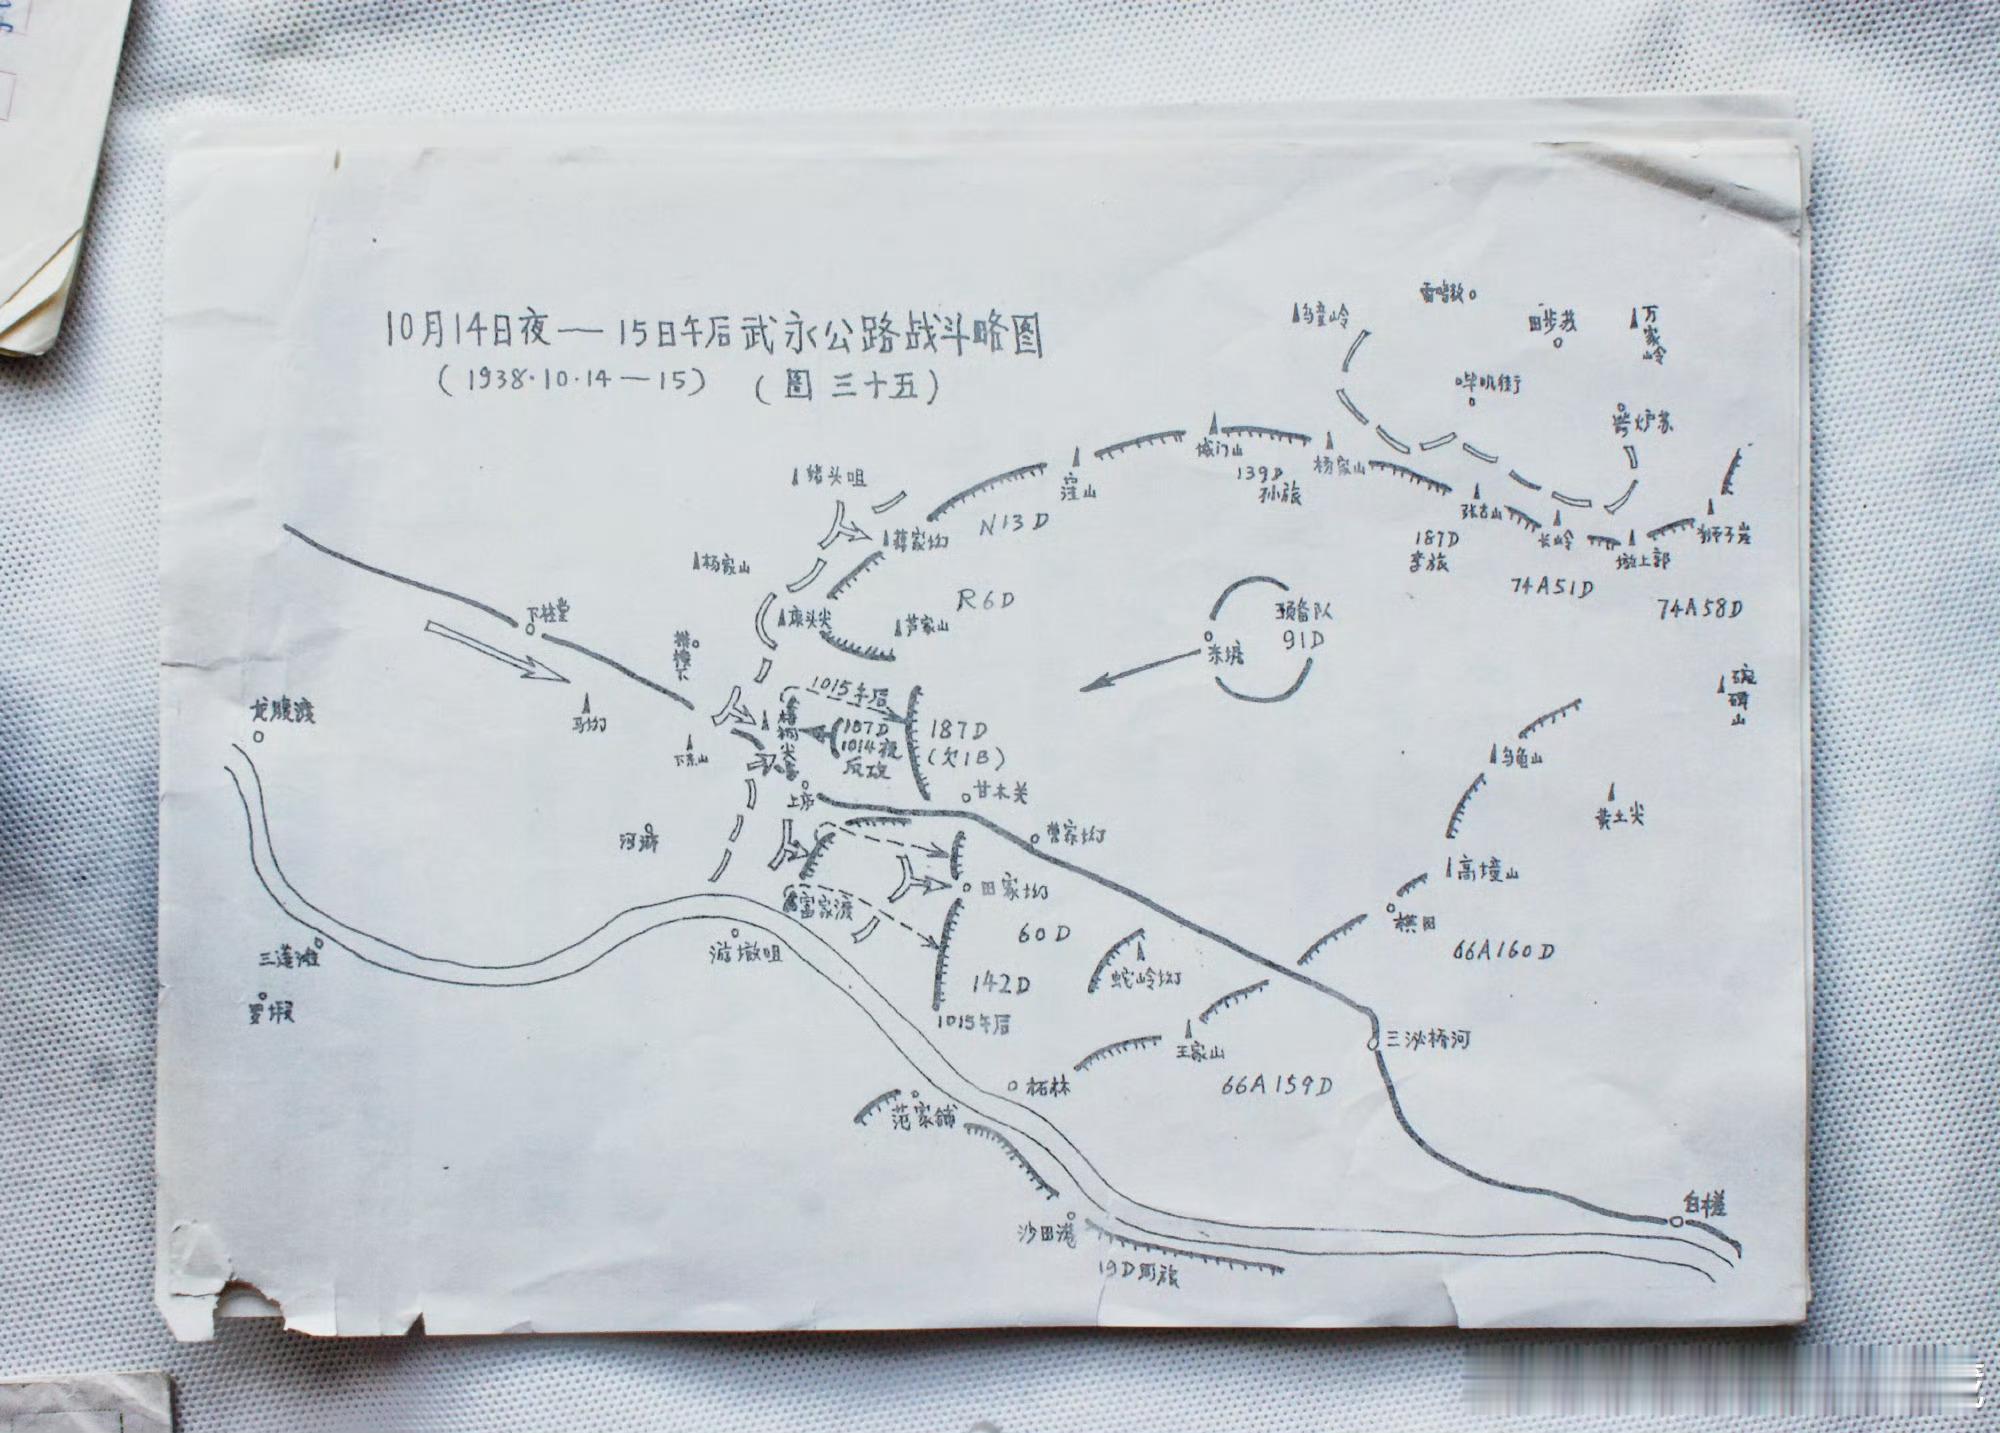 10月14日夜—15日午后武永公路战斗略图
(1938·10·14—15) (图三十五)
雷鸣鼓
乌童岭
田步苏
万家岭
哔叽街
箬炉苏
城门山
杨家山
139D
孙旅
猪头咀
窪山
N13D
蒋家坳
张古山
187D
李旅
长岭
墩上郭
狮子岩
74A51D
74A58D
杨家山
R6D
康头尖
芦家山
下桂堂
预备队
91D
米塘
马坳
龙腹渡
梧桐尖
1015午后
187D
1014夜
反攻
187D
(欠1B)
甘木关
上房
河浒
曹家坳
田家坳
富家渡
60D
142D
1015午后
游墩咀
三莲滩
罗塅
蛇岭坳
碗碑山
乌龟山
黄土尖
高墥山
横田
66A160D
王家山
66A159D
三泌桥河
柘林
范家铺
沙田港
19D周旅
白槎